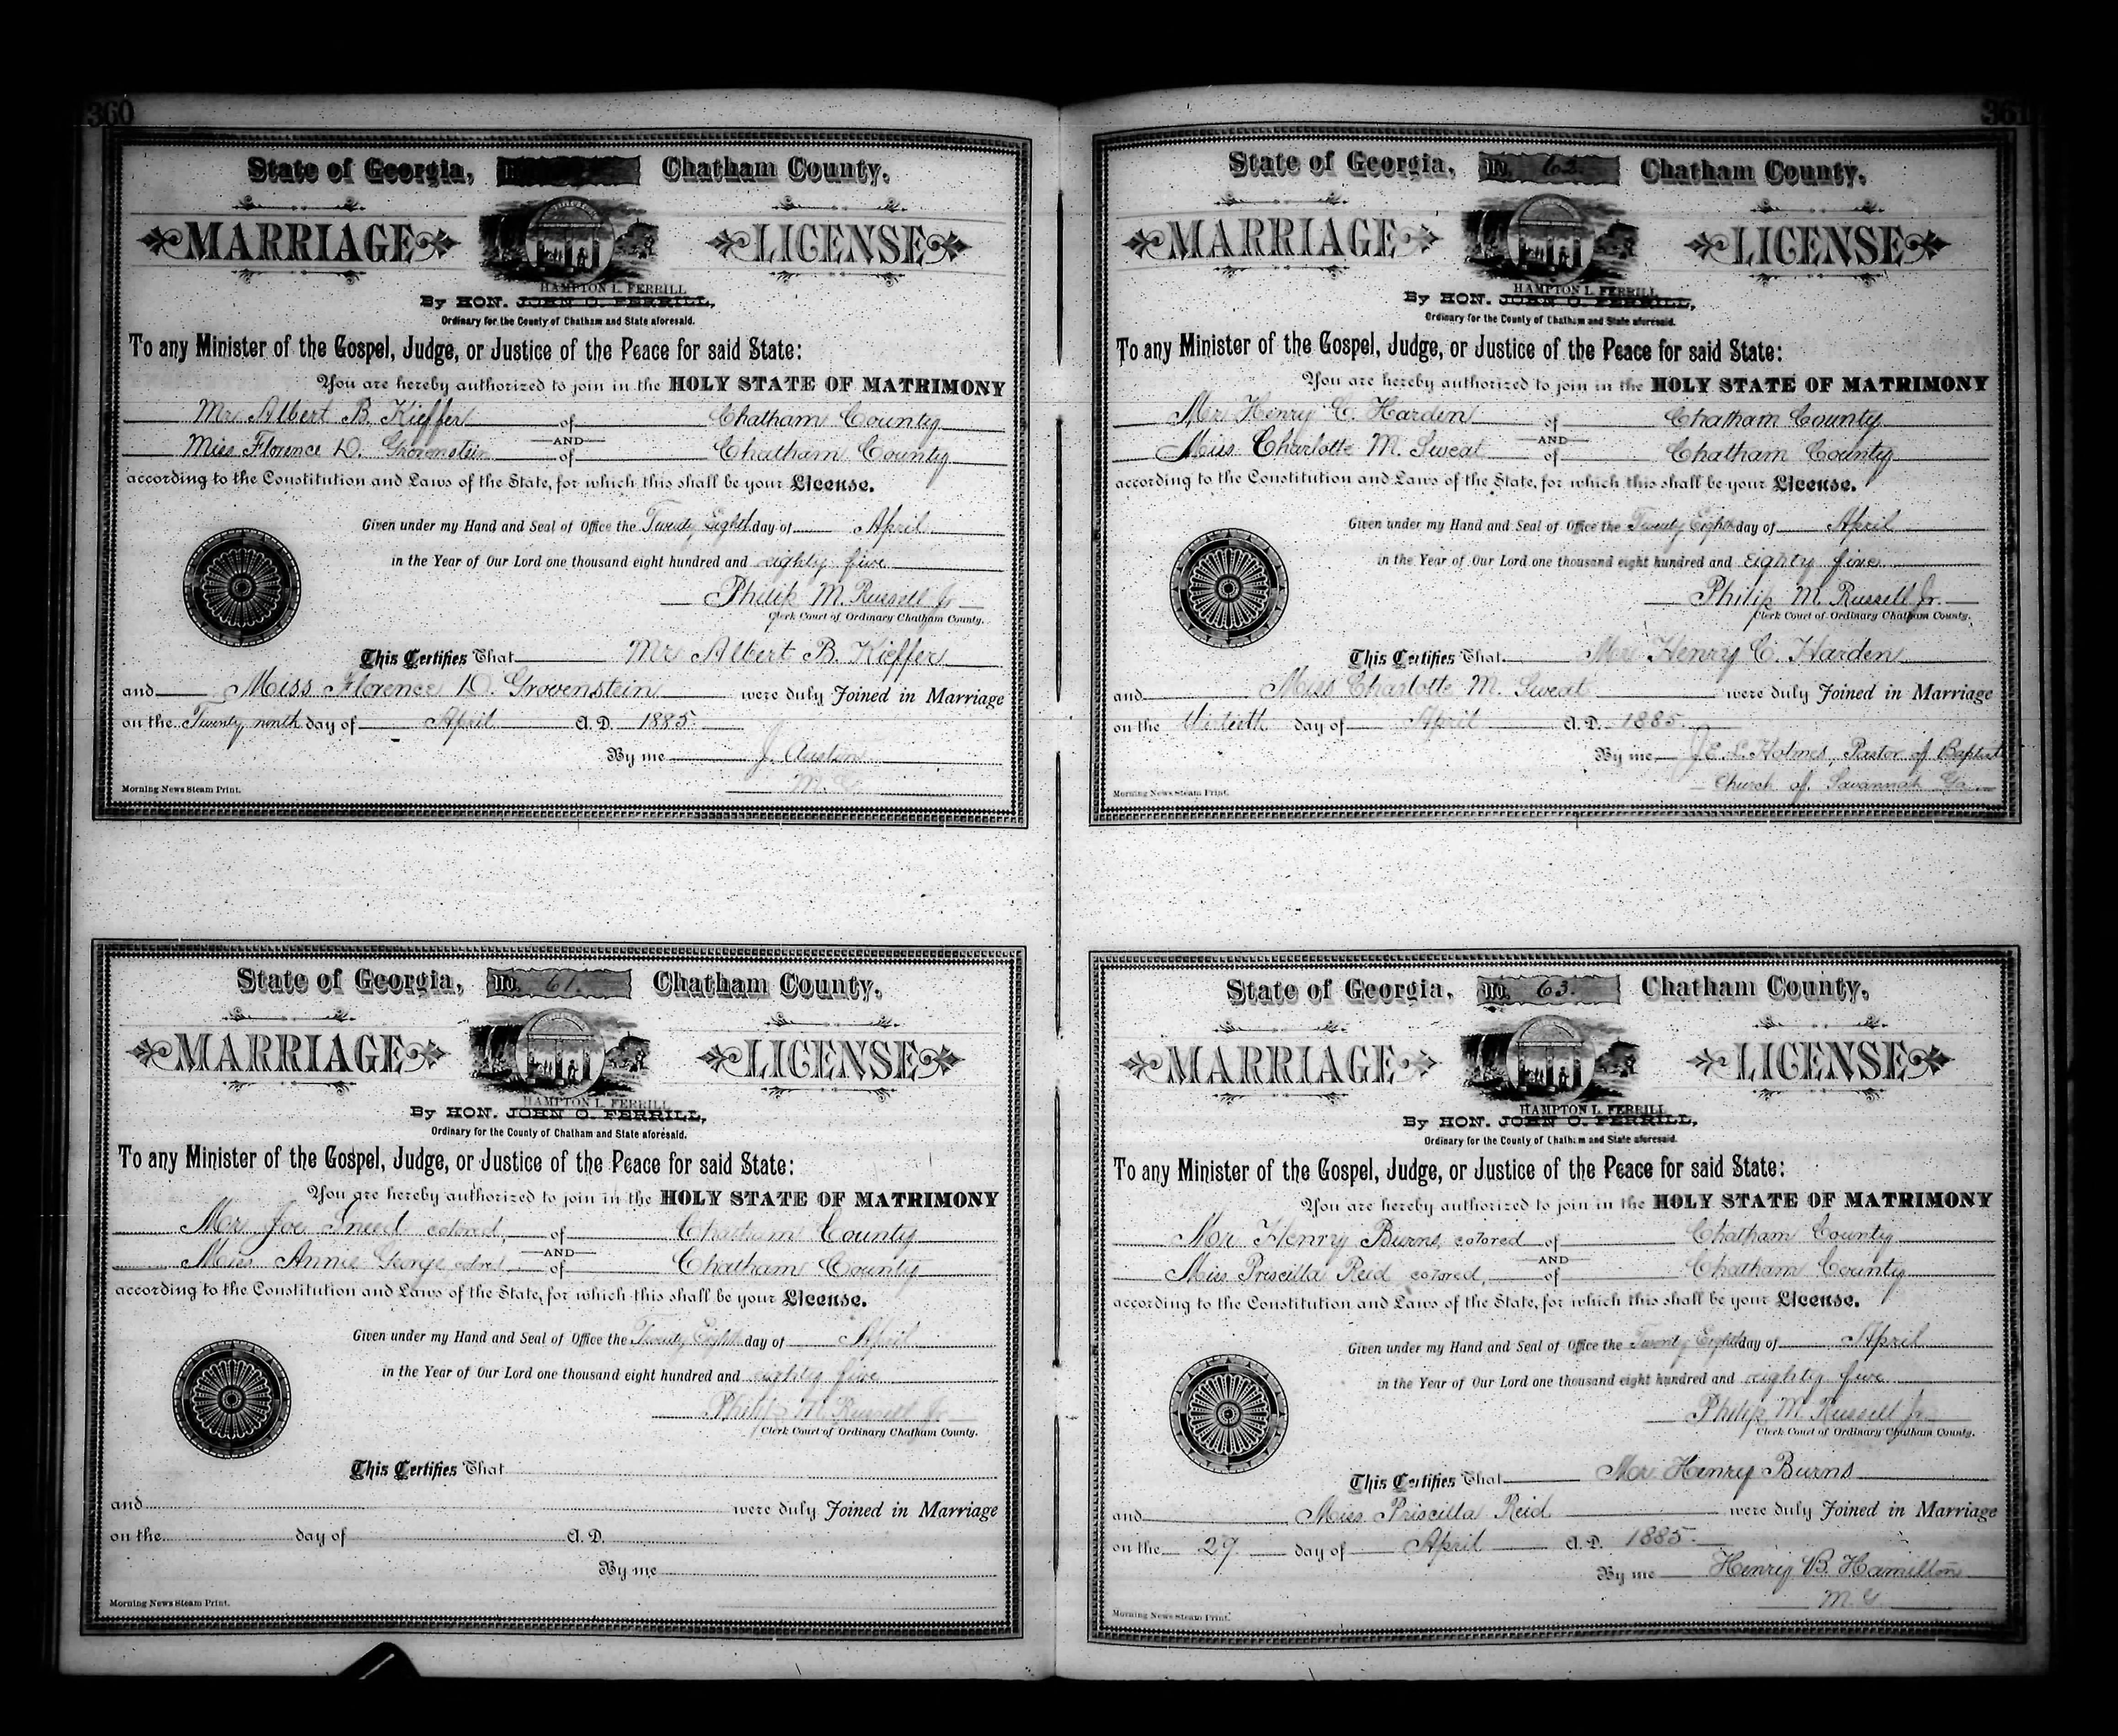 360
State of Georgia, Chatham County.
MARRIAGE LICENSE
HAMPTON L. FERRILL
By HON. JOHN O. FERRILL,
Ordinary for the County of Chatham and State aforesaid.
To any Minister of the Gospel, Judge, or Justice of the Peace for said State:
You are hereby authorized to join in the HOLY STATE OF MATRIMONY
Mr Albert B. Kieffer of Chatham County
AND
Miss Florence D. Grovenstein of Chatham County
according to the Constitution and Laws of the State, for which this shall be your License.
Given under my Hand and Seal of Office the Twenty Eighth day of April
in the Year of Our Lord one thousand eight hundred and eighty five
Philip M. Russell Jr
Clerk Court of Ordinary Chatham County.
This Certifies That Mr Albert B. Kieffer
and Miss Florence D. Grovenstein were duly Joined in Marriage
on the Twenty ninth day of April A. D. 1885.
By me J. Austin
M. G.
Morning News Steam Print.
State of Georgia, No. 61. Chatham County.
MARRIAGE LICENSE
HAMPTON L. FERRILL
By HON. JOHN O. FERRILL,
Ordinary for the County of Chatham and State aforesaid.
To any Minister of the Gospel, Judge, or Justice of the Peace for said State:
You are hereby authorized to join in the HOLY STATE OF MATRIMONY
Mr Joe Sneed colored, of Chatham County
AND
Miss Annie George colored of Chatham County
according to the Constitution and Laws of the State, for which this shall be your License.
Given under my Hand and Seal of Office the Twenty Eighth day of April
in the Year of Our Lord one thousand eight hundred and eighty five
Philip M. Russell Jr
Clerk Court of Ordinary Chatham County.
This Certifies That
and were duly Joined in Marriage
on the day of A. D.
By me
Morning News Steam Print.
361
State of Georgia, No. 62. Chatham County.
MARRIAGE LICENSE
HAMPTON L. FERRILL
By HON. JOHN O. FERRILL,
Ordinary for the County of Chatham and State aforesaid.
To any Minister of the Gospel, Judge, or Justice of the Peace for said State:
You are hereby authorized to join in the HOLY STATE OF MATRIMONY
Mr Henry C. Harden of Chatham County
AND
Miss Charlotte M. Sweat of Chatham County
according to the Constitution and Laws of the State, for which this shall be your License.
Given under my Hand and Seal of Office the Twenty Eighth day of April
in the Year of Our Lord one thousand eight hundred and Eighty five
Philip M. Russell Jr.
Clerk Court of Ordinary Chatham County.
This Certifies That Mr Henry C. Harden
and Miss Charlotte M. Sweat were duly Joined in Marriage
on the day of April A. D. 1885.
By me J. E. L. Holmes, Pastor of Baptist
Church of Savannah Ga
Morning News Steam Print.
State of Georgia, No. 63. Chatham County.
MARRIAGE LICENSE
HAMPTON L. FERRILL
By HON. JOHN O. FERRILL,
Ordinary for the County of Chatham and State aforesaid.
To any Minister of the Gospel, Judge, or Justice of the Peace for said State:
You are hereby authorized to join in the HOLY STATE OF MATRIMONY
Mr Henry Burns, colored of Chatham County
AND
Miss Priscilla Reid colored, of Chatham County
according to the Constitution and Laws of the State, for which this shall be your License.
Given under my Hand and Seal of Office the Twenty Eighth day of April
in the Year of Our Lord one thousand eight hundred and eighty five
Philip M. Russell Jr
Clerk Court of Ordinary Chatham County.
This Certifies That Mr Henry Burns
and Miss Priscilla Reid were duly Joined in Marriage
on the 29. day of April A. D. 1885.
By me Henry B. Hamilton
M. G.
Morning News Steam Print.